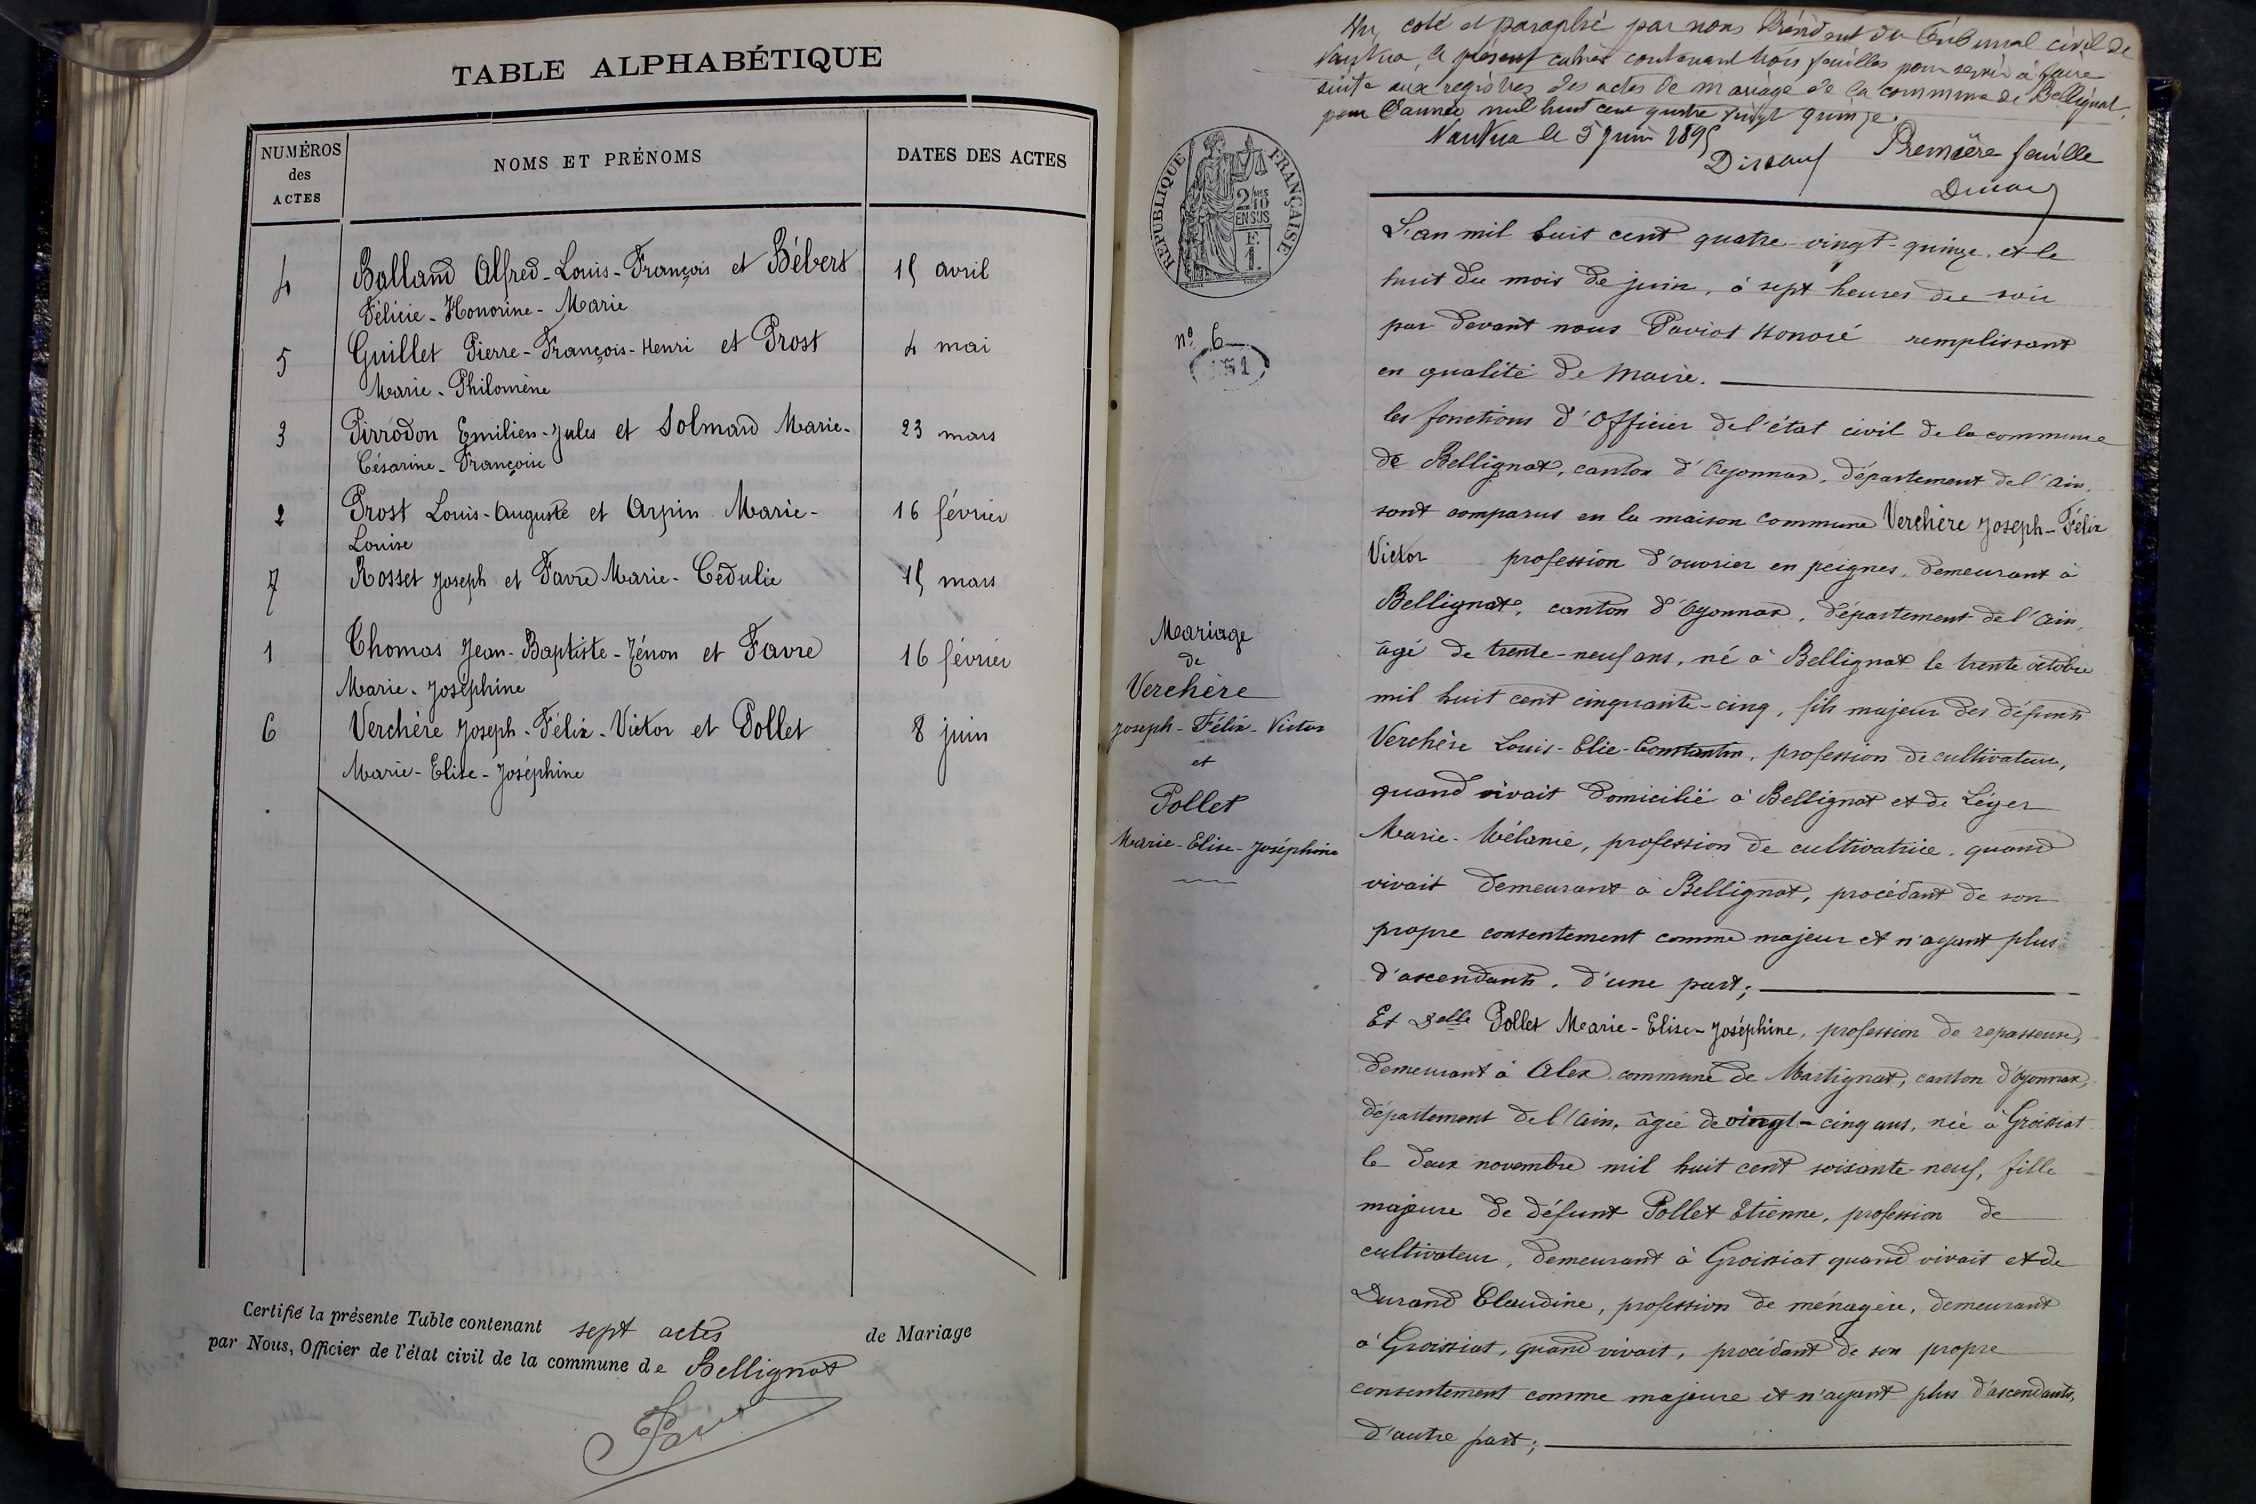 TABLE ALPHABÉTIQUE
NUMÉROS des ACTES
NOMS ET PRÉNOMS
DATES DES ACTES
4 Balland Alfred-Louis-François et Bébert 15 avril
Félicie-Honorine-Marie
5 Guillet Pierre-François-Henri et Prost 4 mai
Marie-Philomène
3 Pirrodon Emilien-Jules et Solmard Marie- 23 mars
Césarine-Françoise
2 Prost Louis-Auguste et Arpin Marie- 16 février
Louise
7 Rosset Joseph et Favre Marie-Cédulie 15 mars
1 Thomas Jean-Baptiste-Zénon et Favre 16 février
Marie-Joséphine
6 Verchère Joseph-Félix-Victor et Pollet 8 juin
Marie-Elise-Joséphine
Certifié la présente Table contenant sept actes de Mariage
par Nous, Officier de l'état civil de la commune de Bellignat
Vu, coté et paraphé par nous Président du Tribunal civil de
Nantua, le présent cahier contenant trois feuilles pour servir à faire
suite aux registres des actes de mariage de la commune de Bellignat,
pour l'année mil huit cent quatre vingt quinze.
Nantua le 5 juin 1895
Première feuille
RÉPUBLIQUE FRANÇAISE
2/10
EN SUS
nº 6
Mariage
de
Verchère
Joseph-Félix-Victor
et
Pollet
Marie-Elise-Joséphine
L'an mil huit cent quatre-vingt-quinze, et le
huit du mois de juin, à sept heures du soir
par devant nous Paviot Honoré remplissant
en qualité de Maire.
les fonctions d'Officier de l'état civil de la commune
de Bellignat, canton d'Oyonnax, département de l'Ain,
sont comparus en la maison commune Verchère Joseph-Félix
Victor profession d'ouvrier en peignes, demeurant à
Bellignat, canton d'Oyonnax, département de l'Ain,
âgé de trente-neuf ans, né à Bellignat le trente octobre
mil huit cent cinquante-cinq, fils majeur des défunts
Verchère Louis-Elie-Constantin, profession de cultivateur,
quand vivait domicilié à Bellignat et de Léger
Marie-Mélanie, profession de cultivatrice, quand
vivait demeurant à Bellignat, procédant de son
propre consentement comme majeur et n'ayant plus
d'ascendants, d'une part;
Et Delle Pollet Marie-Elise-Joséphine, profession de repasseuse,
demeurant à Alex commune de Martignat, canton d'Oyonnax,
département de l'Ain, âgée de vingt-cinq ans, née à Groissiat
le deux novembre mil huit cent soixante-neuf, fille
majeure de défunt Pollet Etienne, profession de
cultivateur, demeurant à Groissiat quand vivait et de
Durand Claudine, profession de ménagère, demeurant
à Groissiat, quand vivait, procédant de son propre
consentement comme majeure et n'ayant plus d'ascendants,
d'autre part;